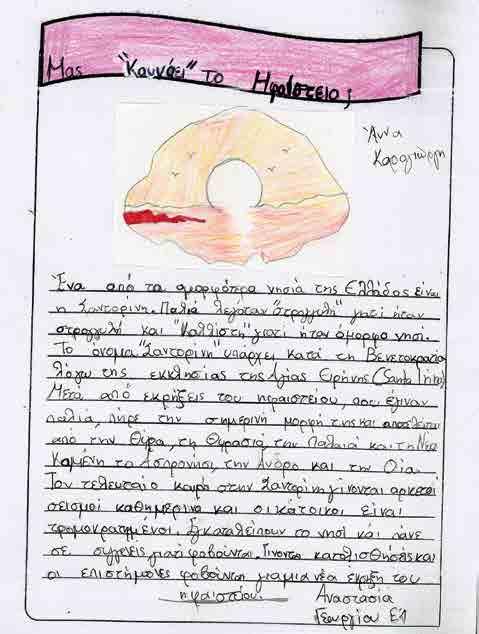 Μας "Κουνάει" το Ηφαίστειο;
Άννα
Καραγιώργη
Ένα από τα ομορφότερα νησιά της Ελλάδος είναι
η Σαντορίνη. Παλιά λεγόταν "στρογγυλή" γιατί ήταν
στρογγυλή και "Καλλίστη" γιατί ήταν όμορφο νησί.
Το όνομα "Σαντορίνη" υπάρχει κατά τη Βενετοκρατία
λόγω της εκκλησίας της Αγίας Ειρήνης (Santa Irine)
Μετά από εκρήξεις του ηφαιστείου, που έγιναν
παλιά, πήρε την σημερινή μορφή της και αποτελείται
από την Θήρα, τη Θηρασία, την Παλαιά και τη Νέα
Καμένη το Ασπρονήσι, την Άνδρο και την Οία.
Τον τελευταίο καιρό στην Σαντορίνη γίνονται αρκετοί
σεισμοί καθημερινά και οι κάτοικοι είναι
τρομοκρατημένοι. Εγκαταλείπουν το νησί και πάνε
σε συγγενείς γιατί φοβούνται. Γίνονται κατολισθήσεις και
οι επιστήμονες φοβούνται για μια νέα έκρηξη του
ηφαιστείου.
Αναστασία
Γεωργίου Ε1